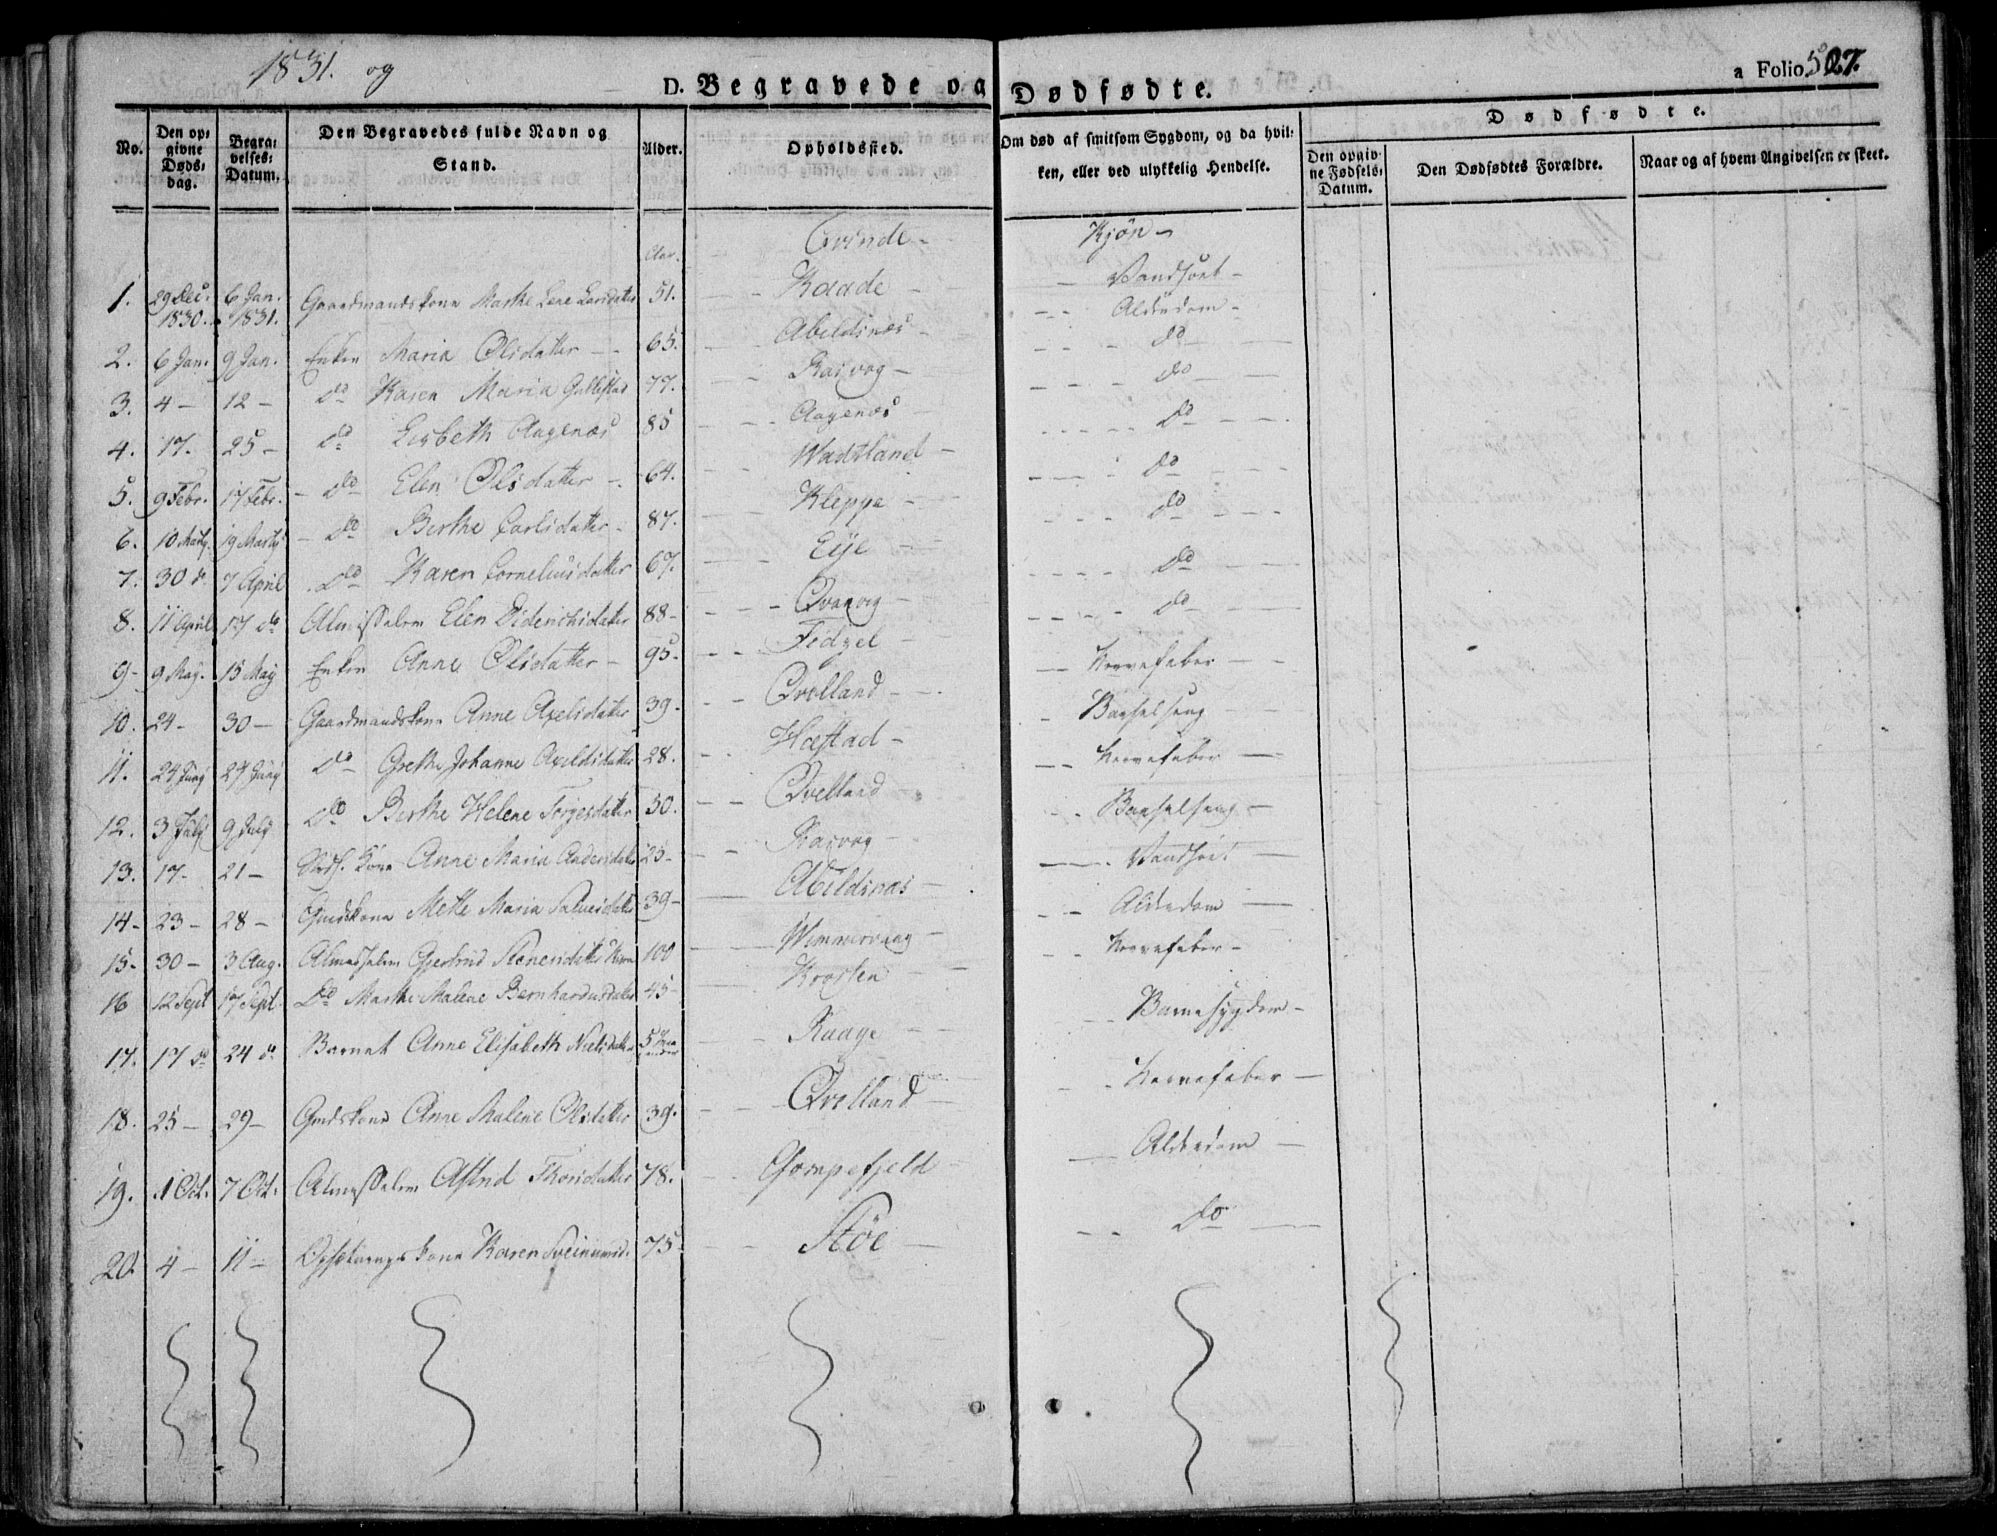 1831. og
D. Begravede og Dødfødte.
a Folio 507.
No.
Den opgivne Dødsdag.
Begravelses-Datum.
Den Begravedes fulde Navn og Stand.
Alder.
Opholdssted.
Om død af smitsom Sygdom, og da hvilken, eller ved ulykkelig Hendelse.
Dødfødte.
Den opgivne Fødsels-Datum.
Den Dødfødtes Forældre.
Naar og af hvem Angivelsen er skeet.
Qvinde - Kjön -
Aar.
1. 29 Dec. 1830. 6 Jan. 1831. Gaardmandskone Marthe Lene Larsdatter 51. Raade - Vandsoet -
2. 6 Jan. 9 Jan. Enken Maria Olsdatter - 65. Abeldsnæs - Alderdom -
3. 4 - 12 - do Karen Maria Gullestad 77. Rasvog - do
4. 17. 25 - do Lisbeth Aagenæs 85 Aagenæs do
5. 9 Febr. 17 Febr. - do Elen Olsdatter - 64. Wadtland - do
6. 10 Marty. 19 Marty - do Berthe Carlsdatter - 87. Kleppe - do
7. 30 do 7 April do Karen Corneliusdatter 67. Eye - do
8. 11 April 17 do Almisselem Elen Didrichsdatter 88 - Qvavig - do
9 - 9 May. 15 May Enken Anne Olsdatter - 95. Fedgel - do
10. 24 - 30 - Gaardmandskone Anne Axelsdatter 39 - Qvelland - Nervefeber -
11. 24 Juny 27 Juny do Grethe Johanne Axeldsdatter 28. Hæstad - Barselseng
12. 3 July 9 July do Berthe Helene Torgesdatter 50. Qvelland Nervefeber -
13. 17 - 21 - Kone Anne Maria Andersdatter 25 - Rasvog - Barselseng -
14 - 23 - 28 - Gmdskone Mette Maria Salvesdatter 39 - Abeldsnæs - Vandsoet
15 - 30 - 3 Aug. Almesselem Gjertrud Stenersdatter 100 Wimmervaag - Alderdom
16 12 Sept 17 Sept. do Marthe Malene Bernhardusdatter 45 - Krossen - Nervefeber -
17. 17 do 24 do Barnet Anne Elisabeth Nielsdatter 5 Raage - Barnesygdom -
18. 25 - 29 - Gmdskone Anne Malene Olsdatter 39. Qvelland Nervefeber -
19. 1 Oct. 7 Oct. Almesselem Astrid Thorsdatter 78. Gompefjeld - Alderdom -
20. 4 - 11 - Karen 75. Stöe - do